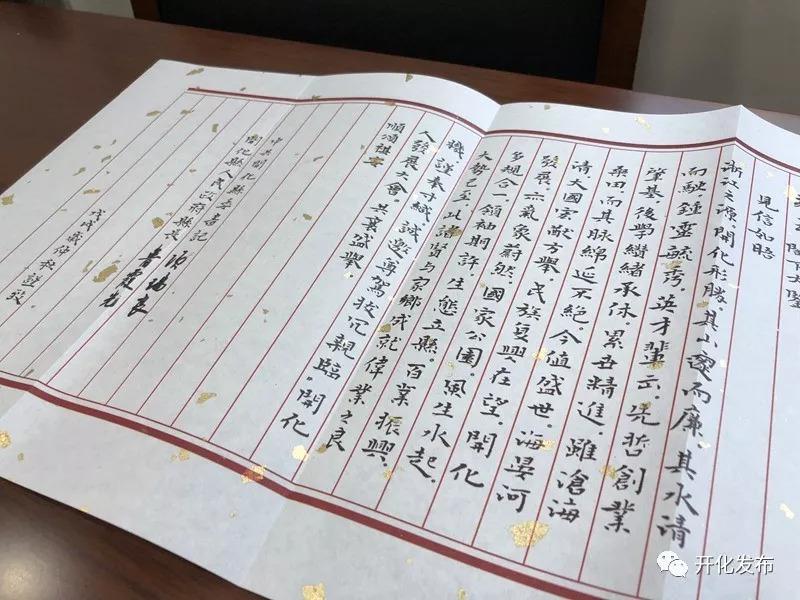 閣下大鑒
見信如晤
浙江之源，開化形勝。其山邃而廉，其水清
而駛。鍾靈毓秀，英才輩出。先哲創業
肇基，後學纘緒承休，累世精進。雖滄海
桑田而其脉綿延不絕。今值盛世，海晏河
清，大國宏猷方舉，民族復興在望。開化
發展，亦氣象蔚然。國家公園風生水起，
多規合一領袖期許，生態立縣，百業振興，
大勢已至。此諸賢與家鄉成就偉業之良
機，謹奉寸緘，誠邀尊駕撥冗親臨。開化
人發展大會。共襄盛舉。
順頌祺安
中共開化縣委書記 項瑞良
開化縣人民政府縣長 魯霞光
戊戌歲仲秋謹致
开化发布